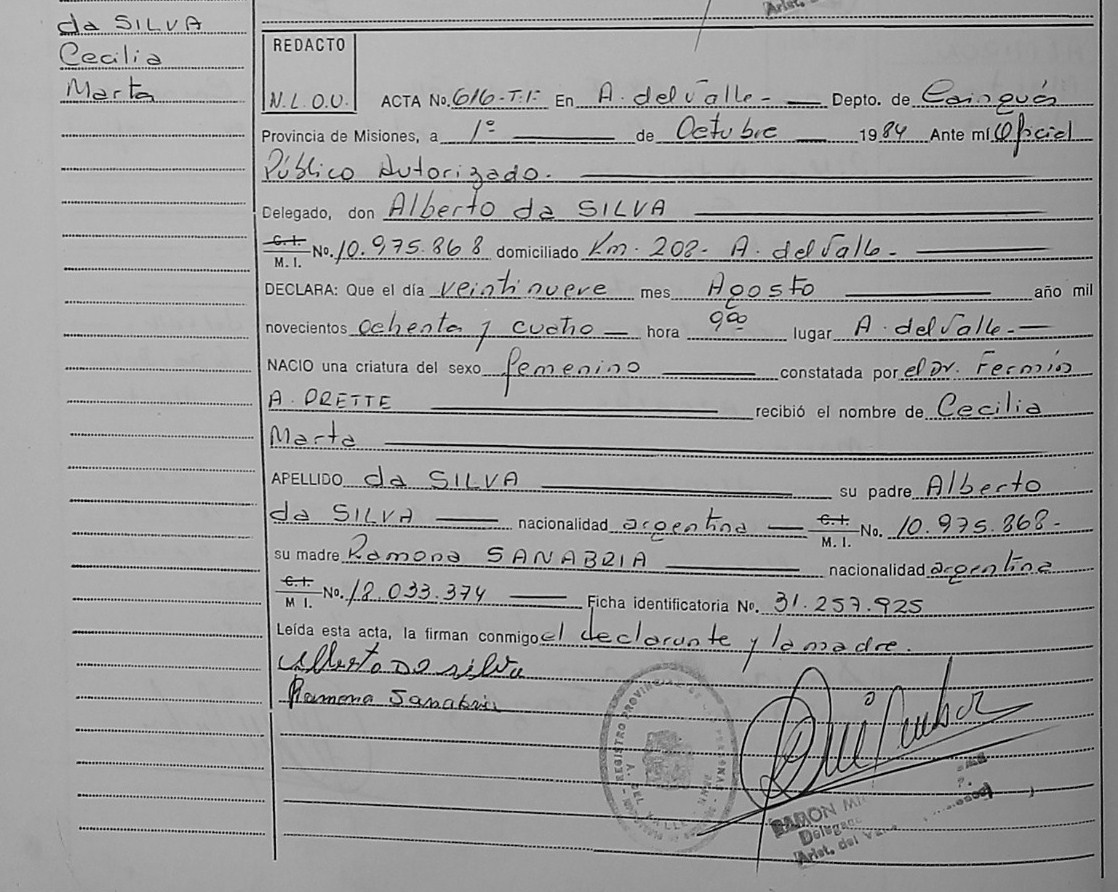 da SILVA
Cecilia
Marta
REDACTO
N.L.O.U.
ACTA No. 616-T.I- En A. del Valle.- Depto. de Cainguás
Provincia de Misiones, a 1º de Octubre 1984 Ante mí Oficial
Público Autorizado.
Delegado, don Alberto da SILVA
C.I.
M. I. No. 10.975.868 domiciliado Km. 208- A. del Valle-
DECLARA: Que el día veintinueve mes Agosto año mil
novecientos ochenta y cuatro hora 9 00 lugar A. del Valle.-
NACIO una criatura del sexo femenino constatada por el Dr. Fermín
A. ORETTE recibió el nombre de Cecilia
Marta
APELLIDO da SILVA su padre Alberto
da SILVA nacionalidad argentina C.I. M. I. No. 10.975.868-
su madre Ramona SANABRIA nacionalidad argentina
C.I.
M I. No. 18.033.374 Ficha identificatoria No. 31.257.925
Leída esta acta, la firman conmigo el declarante y la madre.
Alberto Da silva
Ramona Sanabria
REGISTRO PROVINCIAL DE LAS PERSONAS
RAMON
Delegado
Arist. del Valle